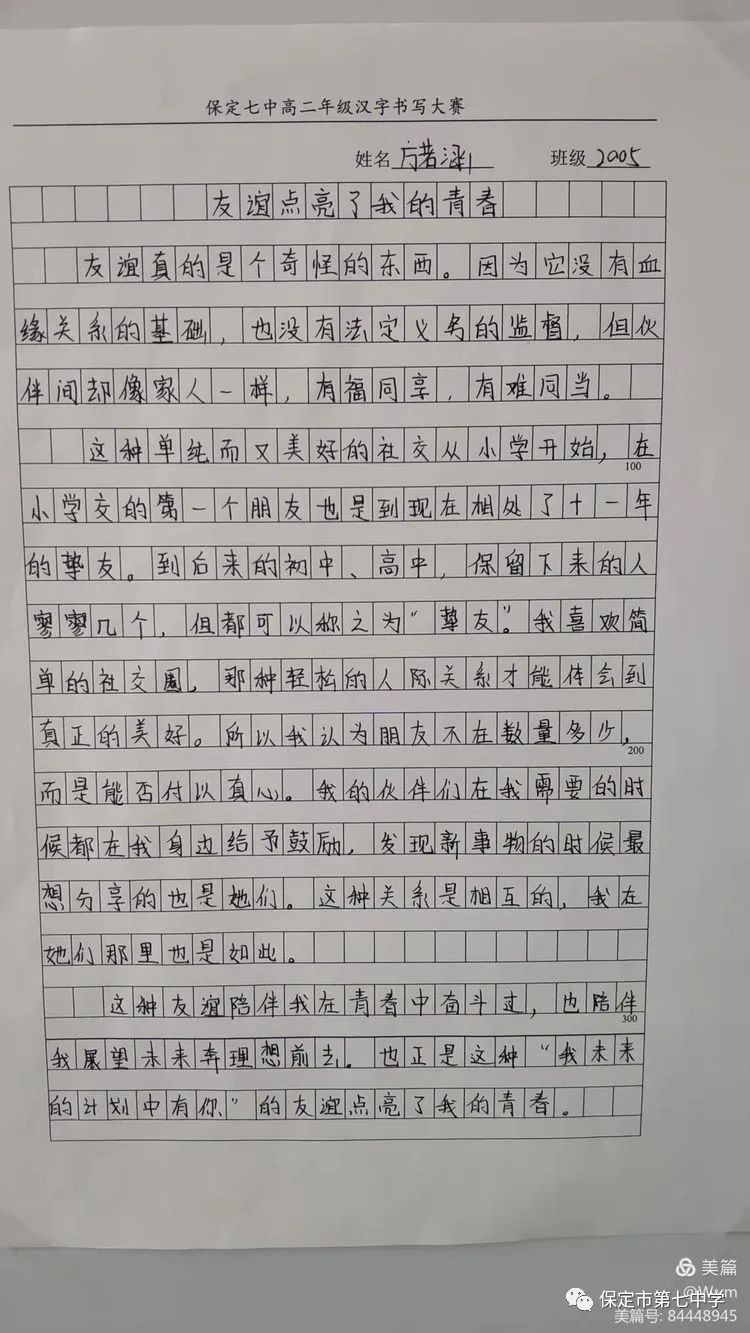 保定七中高二年级汉字书写大赛
姓名 方若涵 班级 2005
友谊点亮了我的青春
友谊真的是个奇怪的东西。因为它没有血
缘关系的基础，也没有法定义务的监督，但伙
伴间却像家人一样，有福同享，有难同当。
这种单纯而又美好的社交从小学开始，在
100
小学交的第一个朋友也是到现在相处了十一年
的挚友。到后来的初中、高中，保留下来的人
寥寥几个，但都可以称之为“挚友”。我喜欢简
单的社交圈，那种轻松的人际关系才能体会到
真正的美好。所以我认为朋友不在数量多少，
200
而是能否付以真心。我的伙伴们在我需要的时
候都在我身边给予鼓励，发现新事物的时候最
想分享的也是她们。这种关系是相互的，我在
她们那里也是如此。
这种友谊陪伴我在青春中奋斗过，也陪伴
300
我展望未来奔理想前去。也正是这种“我未来
的计划中有你”的友谊点亮了我的青春。
美篇
@Wxm
保定市第七中学
美篇号: 84448945